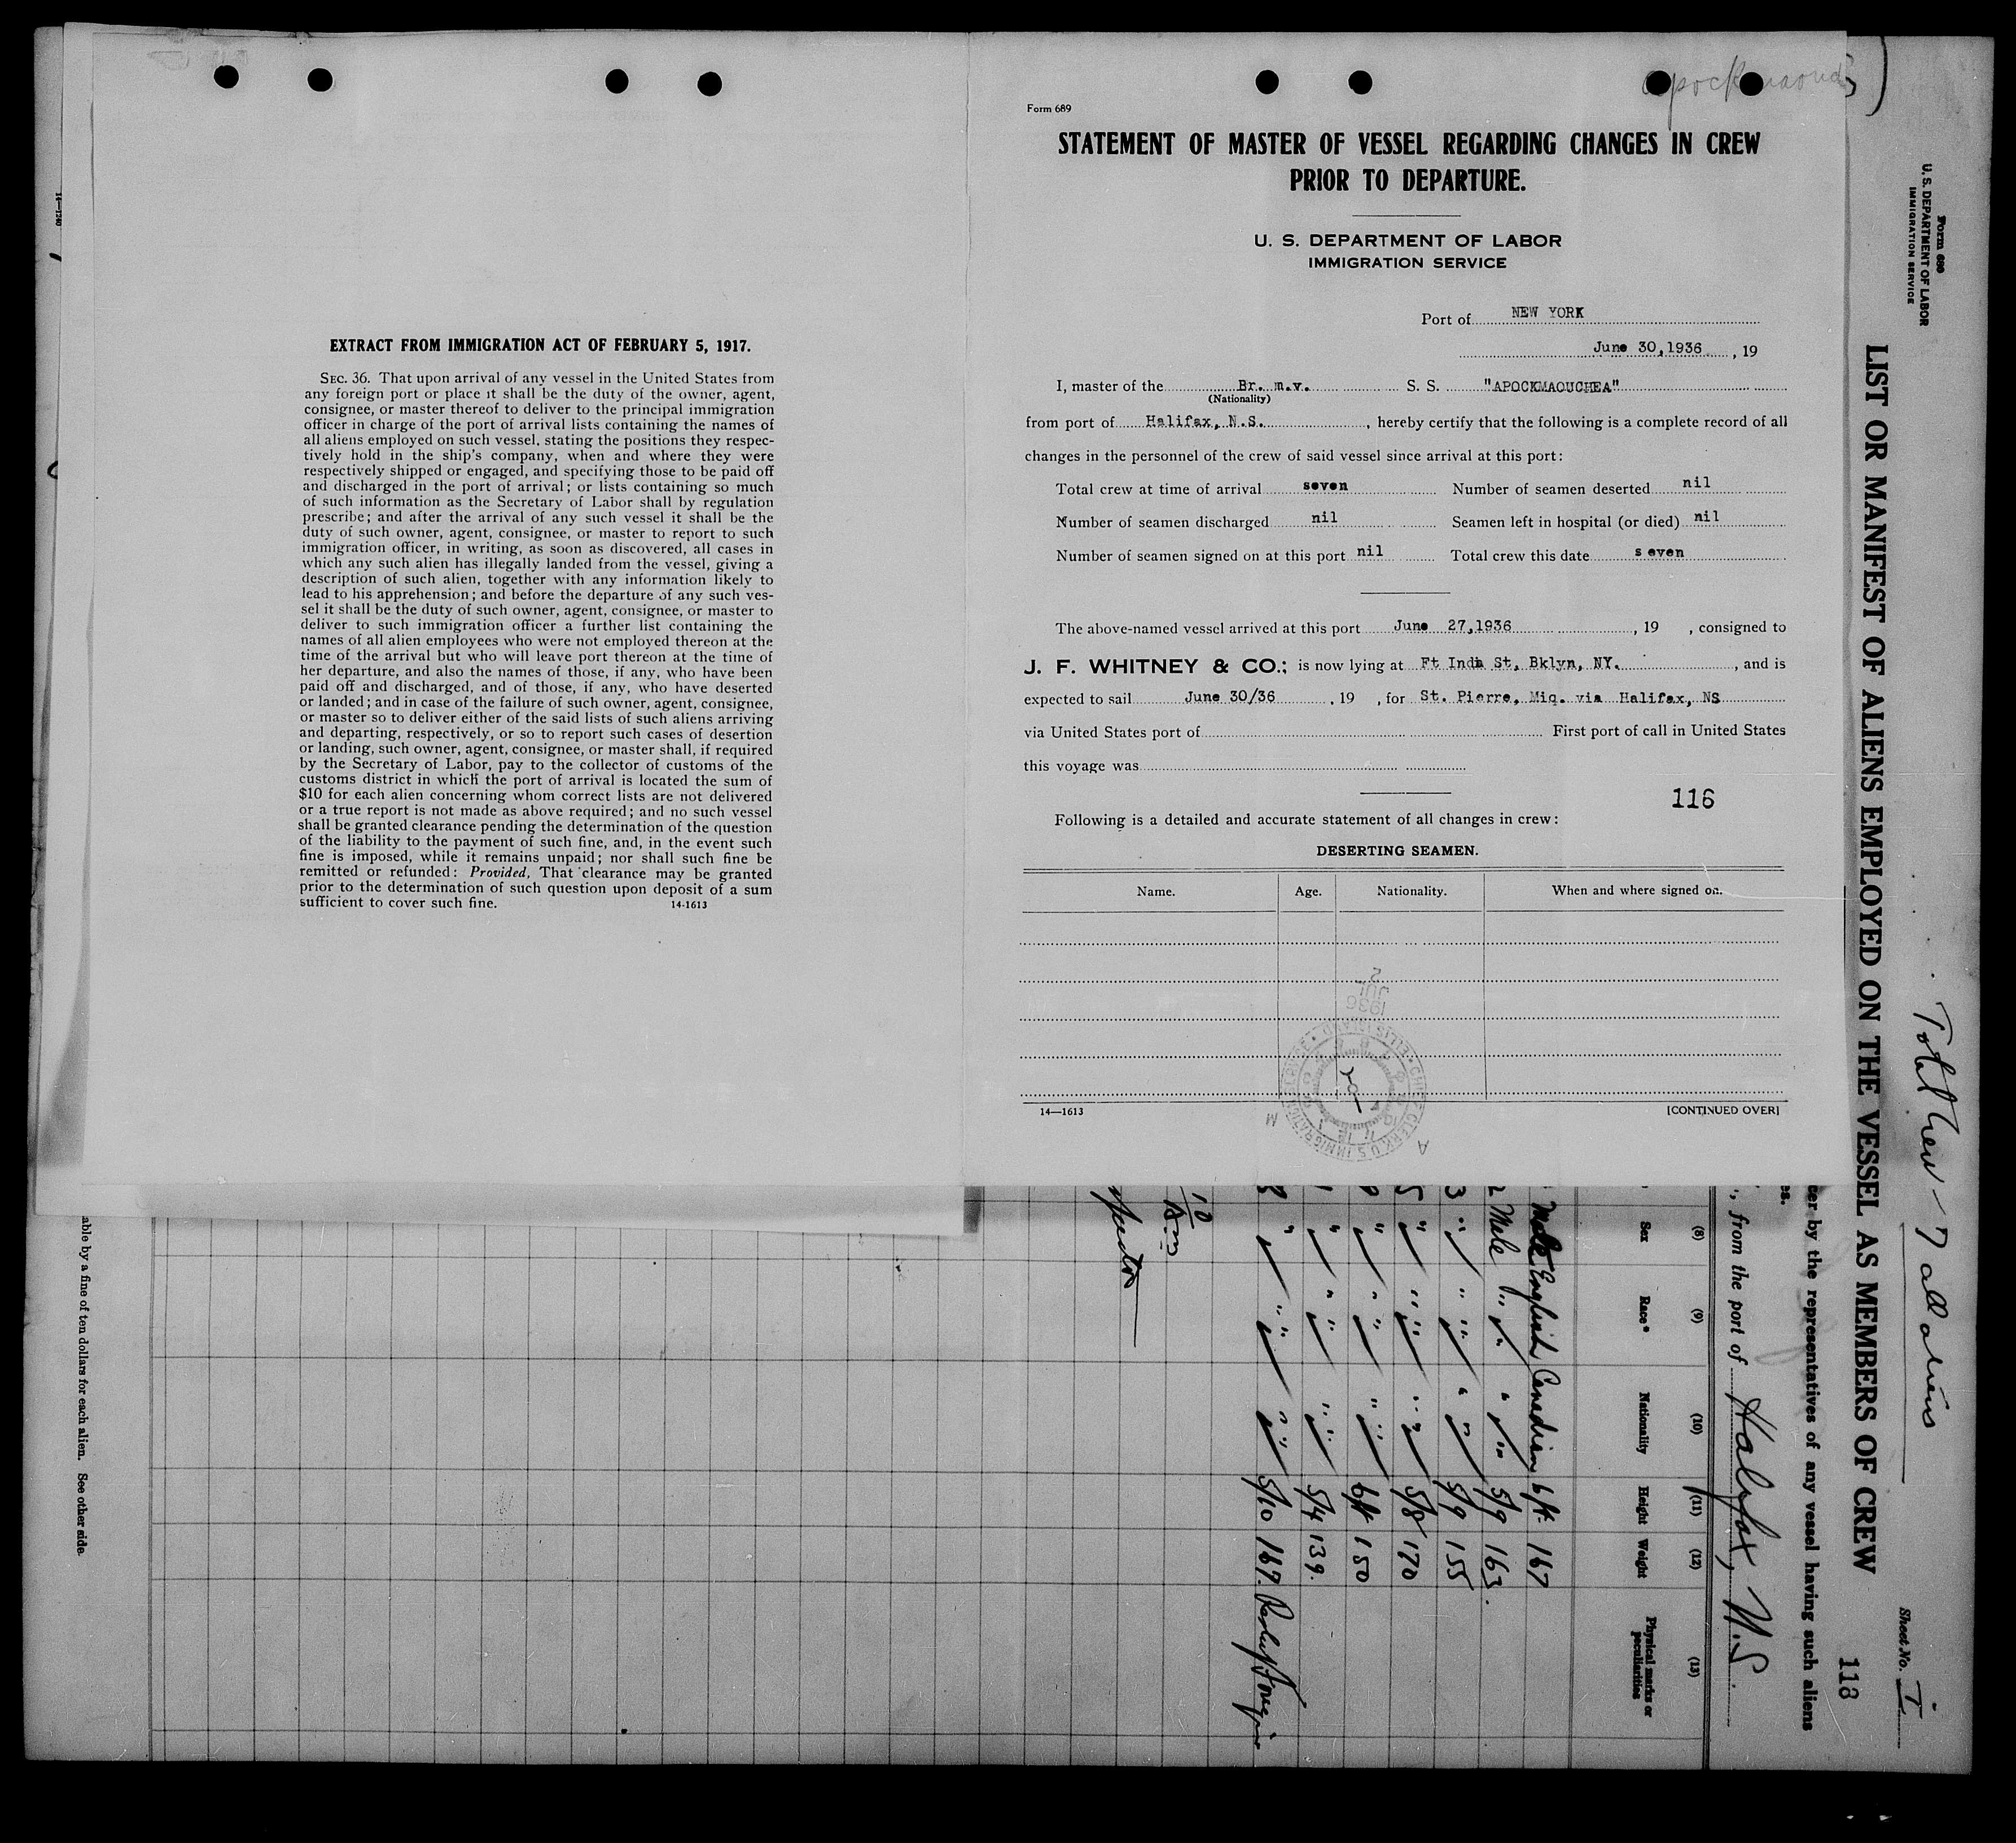 EXTRACT FROM IMMIGRATION ACT OF FEBRUARY 5, 1917.
SEC. 36. That upon arrival of any vessel in the United States from
any foreign port or place it shall be the duty of the owner, agent,
consignee, or master thereof to deliver to the principal immigration
officer in charge of the port of arrival lists containing the names of
all aliens employed on such vessel, stating the positions they respec-
tively hold in the ship's company, when and where they were
respectively shipped or engaged, and specifying those to be paid off
and discharged in the port of arrival; or lists containing so much
of such information as the Secretary of Labor shall by regulation
prescribe; and after the arrival of any such vessel it shall be the
duty of such owner, agent, consignee, or master to report to such
immigration officer, in writing, as soon as discovered, all cases in
which any such alien has illegally landed from the vessel, giving a
description of such alien, together with any information likely to
lead to his apprehension; and before the departure of any such ves-
sel it shall be the duty of such owner, agent, consignee, or master to
deliver to such immigration officer a further list containing the
names of all alien employees who were not employed thereon at the
time of the arrival but who will leave port thereon at the time of
her departure, and also the names of those, if any, who have been
paid off and discharged, and of those, if any, who have deserted
or landed; and in case of the failure of such owner, agent, consignee,
or master so to deliver either of the said lists of such aliens arriving
and departing, respectively, or so to report such cases of desertion
or landing, such owner, agent, consignee, or master shall, if required
by the Secretary of Labor, pay to the collector of customs of the
customs district in which the port of arrival is located the sum of
$10 for each alien concerning whom correct lists are not delivered
or a true report is not made as above required; and no such vessel
shall be granted clearance pending the determination of the question
of the liability to the payment of such fine, and, in the event such
fine is imposed, while it remains unpaid; nor shall such fine be
remitted or refunded: Provided, That clearance may be granted
prior to the determination of such question upon deposit of a sum
sufficient to cover such fine. 14-1613
Form 689
STATEMENT OF MASTER OF VESSEL REGARDING CHANGES IN CREW
PRIOR TO DEPARTURE.
U. S. DEPARTMENT OF LABOR
IMMIGRATION SERVICE
Port of NEW YORK
June 30,1936, 19
I, master of the Br. m.v. S. S. "APOCKMAOUCHEA"
(Nationality)
from port of Halifax, N.S., hereby certify that the following is a complete record of all
changes in the personnel of the crew of said vessel since arrival at this port:
Total crew at time of arrival seven Number of seamen deserted nil
Number of seamen discharged nil Seamen left in hospital (or died) nil
Number of seamen signed on at this port nil Total crew this date s even
The above-named vessel arrived at this port June 27,1936, 19 , consigned to
J. F. WHITNEY & CO.; is now lying at Ft Inda St, Bklyn, NY., and is
expected to sail June 30/36, 19 , for St. Pierre, Miq. via Halifax, NS
via United States port of First port of call in United States
this voyage was
116
Following is a detailed and accurate statement of all changes in crew:
DESERTING SEAMEN.
Name. Age. Nationality. When and where signed on.
1936
JUL
2
CHIEF CLERK U.S. IMMIGRATION SERVICE • ELLIS ISLAND •
A M
14—1613 [CONTINUED OVER]
14—1240
Form 680
U. S. DEPARTMENT OF LABOR
IMMIGRATION SERVICE
Total Crew - 7 all aliens
Sheet No. I
LIST OR MANIFEST OF ALIENS EMPLOYED ON THE VESSEL AS MEMBERS OF CREW
118
cer by the representatives of any vessel having such aliens
es.
, from the port of Halifax, N.S
(8) (9) (10) (11) (12) (13)
Sex Race* Nationality Height Weight Physical marks or peculiarities
Male English Canadian 6ft. 167
2 Male " " 5/9 163.
3 " " " 5/9 155
5 " " " 5/8 170
" " " 6ft 150
" " " 5/4 139.
8 " " " 5/10 169.
10
able by a fine of ten dollars for each alien. See other side.